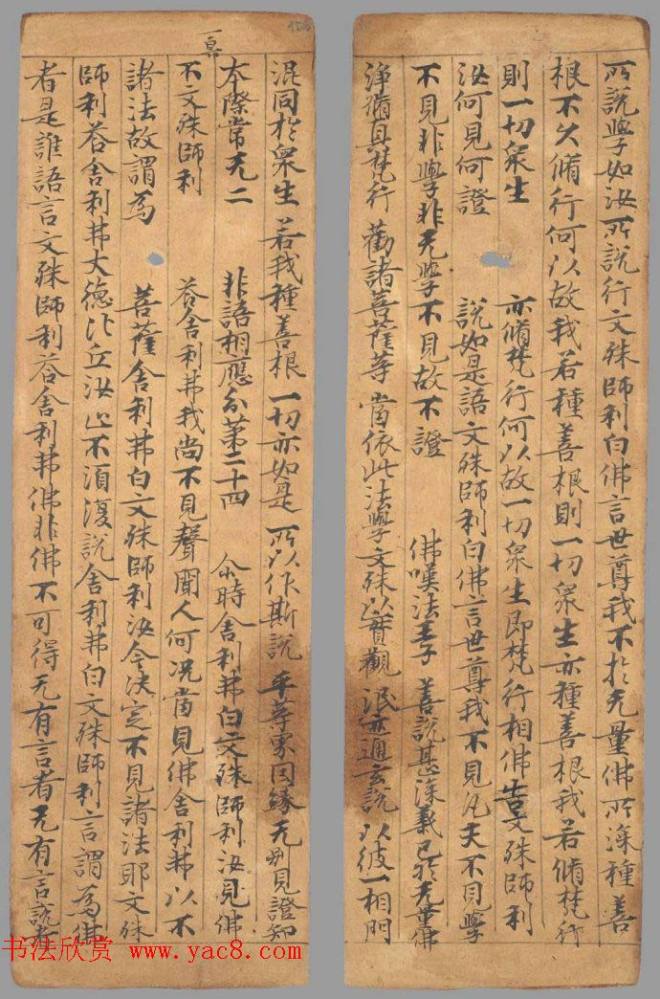 所說學如汝所說行文殊師利白佛言世尊我不於无量佛所深種善
根不久脩行何以故我若種善根則一切衆生亦種善根我若脩梵行
則一切衆生 亦脩梵行何以故一切衆生即梵行相佛告文殊師利
汝何見何證 說如是語文殊師利白佛言世尊我不見凡夫不見學
不見非學非无學不見故不證 佛嘆法王子 善說甚深義已於无量佛
淨脩具梵行 勸諸菩薩等 當依此法學文殊以實觀 泯迹通玄說 以彼一相門
混同於衆生 若我種善根 一切亦如是 所以作斯說 平等 因緣 无別見證知
本際常无二 非語相應分第二十四 尒時舍利弗白文殊師利汝見佛
不文殊師利 荅舍利弗我尚不見聲聞人何況當見佛舍利弗以不
諸法故謂為 菩薩舍利弗白文殊師利汝今决定不見諸法耶文殊
師利荅舍利弗大德比丘汝止不須復說舍利弗白文殊師利言謂為佛
者是誰語言文殊師利荅舍利弗佛非佛不可得无有言者无有言說者
书法欣赏 www.yac8.com